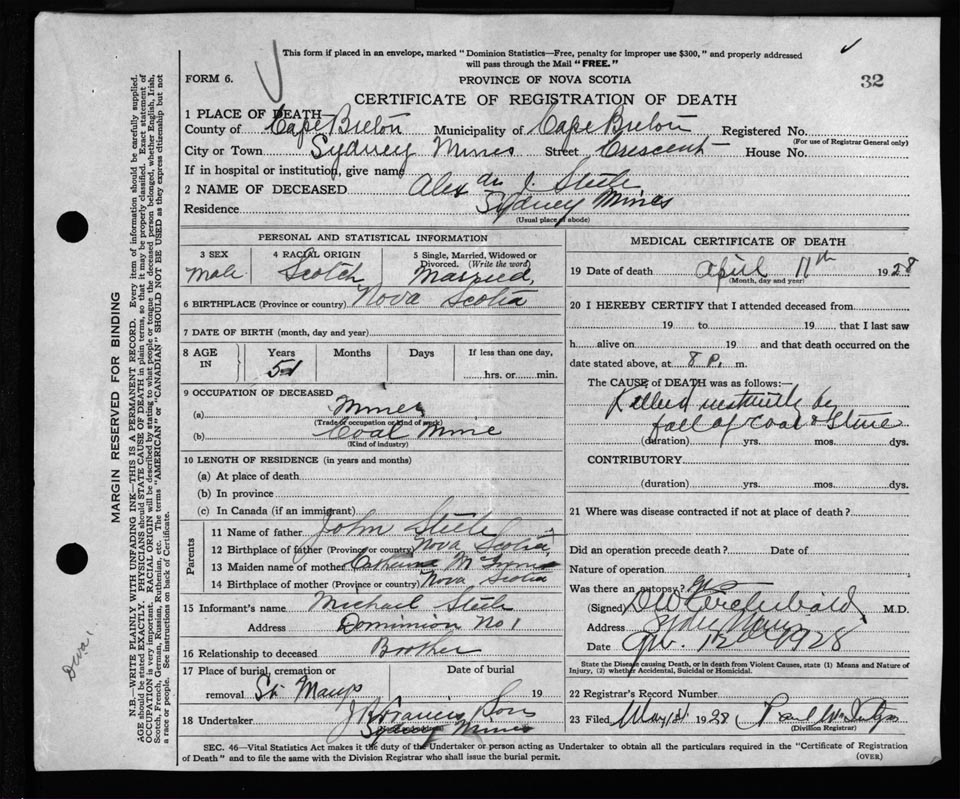 This form if placed in an envelope, marked "Dominion Statistics—Free, penalty for improper use $300," and properly addressed
will pass through the Mail "FREE."
FORM 6.
PROVINCE OF NOVA SCOTIA
32
CERTIFICATE OF REGISTRATION OF DEATH
1 PLACE OF DEATH
County of Cape Breton Municipality of Cape Breton Registered No.
(For use of Registrar General only)
City or Town Sydney Mines Street Crescent House No.
If in hospital or institution, give name
2 NAME OF DECEASED Alex J. Steele
Residence Sydney Mines
(Usual place of abode)
PERSONAL AND STATISTICAL INFORMATION
3 SEX Male
4 RACIAL ORIGIN Scotch
5 Single, Married, Widowed or Divorced. (Write the word) Married,
6 BIRTHPLACE (Province or country) Nova Scotia
7 DATE OF BIRTH (month, day and year)
8 AGE IN Years Months Days If less than one day,
hrs. or min.
9 OCCUPATION OF DECEASED
(a) Miner
(Trade or occupation or kind of work)
(b) Coal Mine
(Kind of industry)
10 LENGTH OF RESIDENCE (in years and months)
(a) At place of death
(b) In province
(c) In Canada (if an immigrant)
Parents
11 Name of father John Steele
12 Birthplace of father (Province or country) Nova Scotia,
13 Maiden name of mother Catherine
14 Birthplace of mother (Province or country) Nova Scotia
15 Informant's name Michael Steele
Address Dominion No 1
16 Relationship to deceased Brother
17 Place of burial, cremation or Date of burial
removal St. Marys 19
18 Undertaker J R Francis Son
Sydney Mines
MEDICAL CERTIFICATE OF DEATH
19 Date of death April 11th 1928
(Month, day and year)
20 I HEREBY CERTIFY that I attended deceased from
19 to 19 that I last saw
h alive on 19 and that death occurred on the
date stated above, at 8 P. m.
The CAUSE of DEATH was as follows:—
Killed instantly by
fall of coal & stone
(duration) yrs. mos. dys.
CONTRIBUTORY
(duration) yrs. mos. dys.
21 Where was disease contracted if not at place of death?
Did an operation precede death? Date of
Nature of operation
Was there an autopsy? no
(Signed) D W Archibald M.D.
Address Sydney Mines
Date Apr. 12 1928
State the Disease causing Death, or in death from Violent Causes, state (1) Means and Nature of
Injury, (2) whether Accidental, Suicidal or Homicidal.
22 Registrar's Record Number
23 Filed May 1st 1928 Paul
(Division Registrar)
SEC. 46—Vital Statistics Act makes it the duty of the Undertaker or person acting as Undertaker to obtain all the particulars required in the "Certificate of Registration
of Death" and to file the same with the Division Registrar who shall issue the burial permit.
(OVER)
MARGIN RESERVED FOR BINDING
N.B.—WRITE PLAINLY WITH UNFADING INK—THIS IS A PERMANENT RECORD. Every item of information should be carefully supplied.
AGE should be stated EXACTLY. PHYSICIANS should STATE CAUSE OF DEATH in plain terms, so that it may be properly classified. Exact statement of
OCCUPATION is very important. RACIAL ORIGIN will be described by stating to what people or tongue the deceased person belonged, whether English, Irish,
Scotch, French, German, Russian, Ruthenian, etc. The terms "AMERICAN" or "CANADIAN" SHOULD NOT BE USED as they express citizenship but not
a race or people. See instructions on back of Certificate.